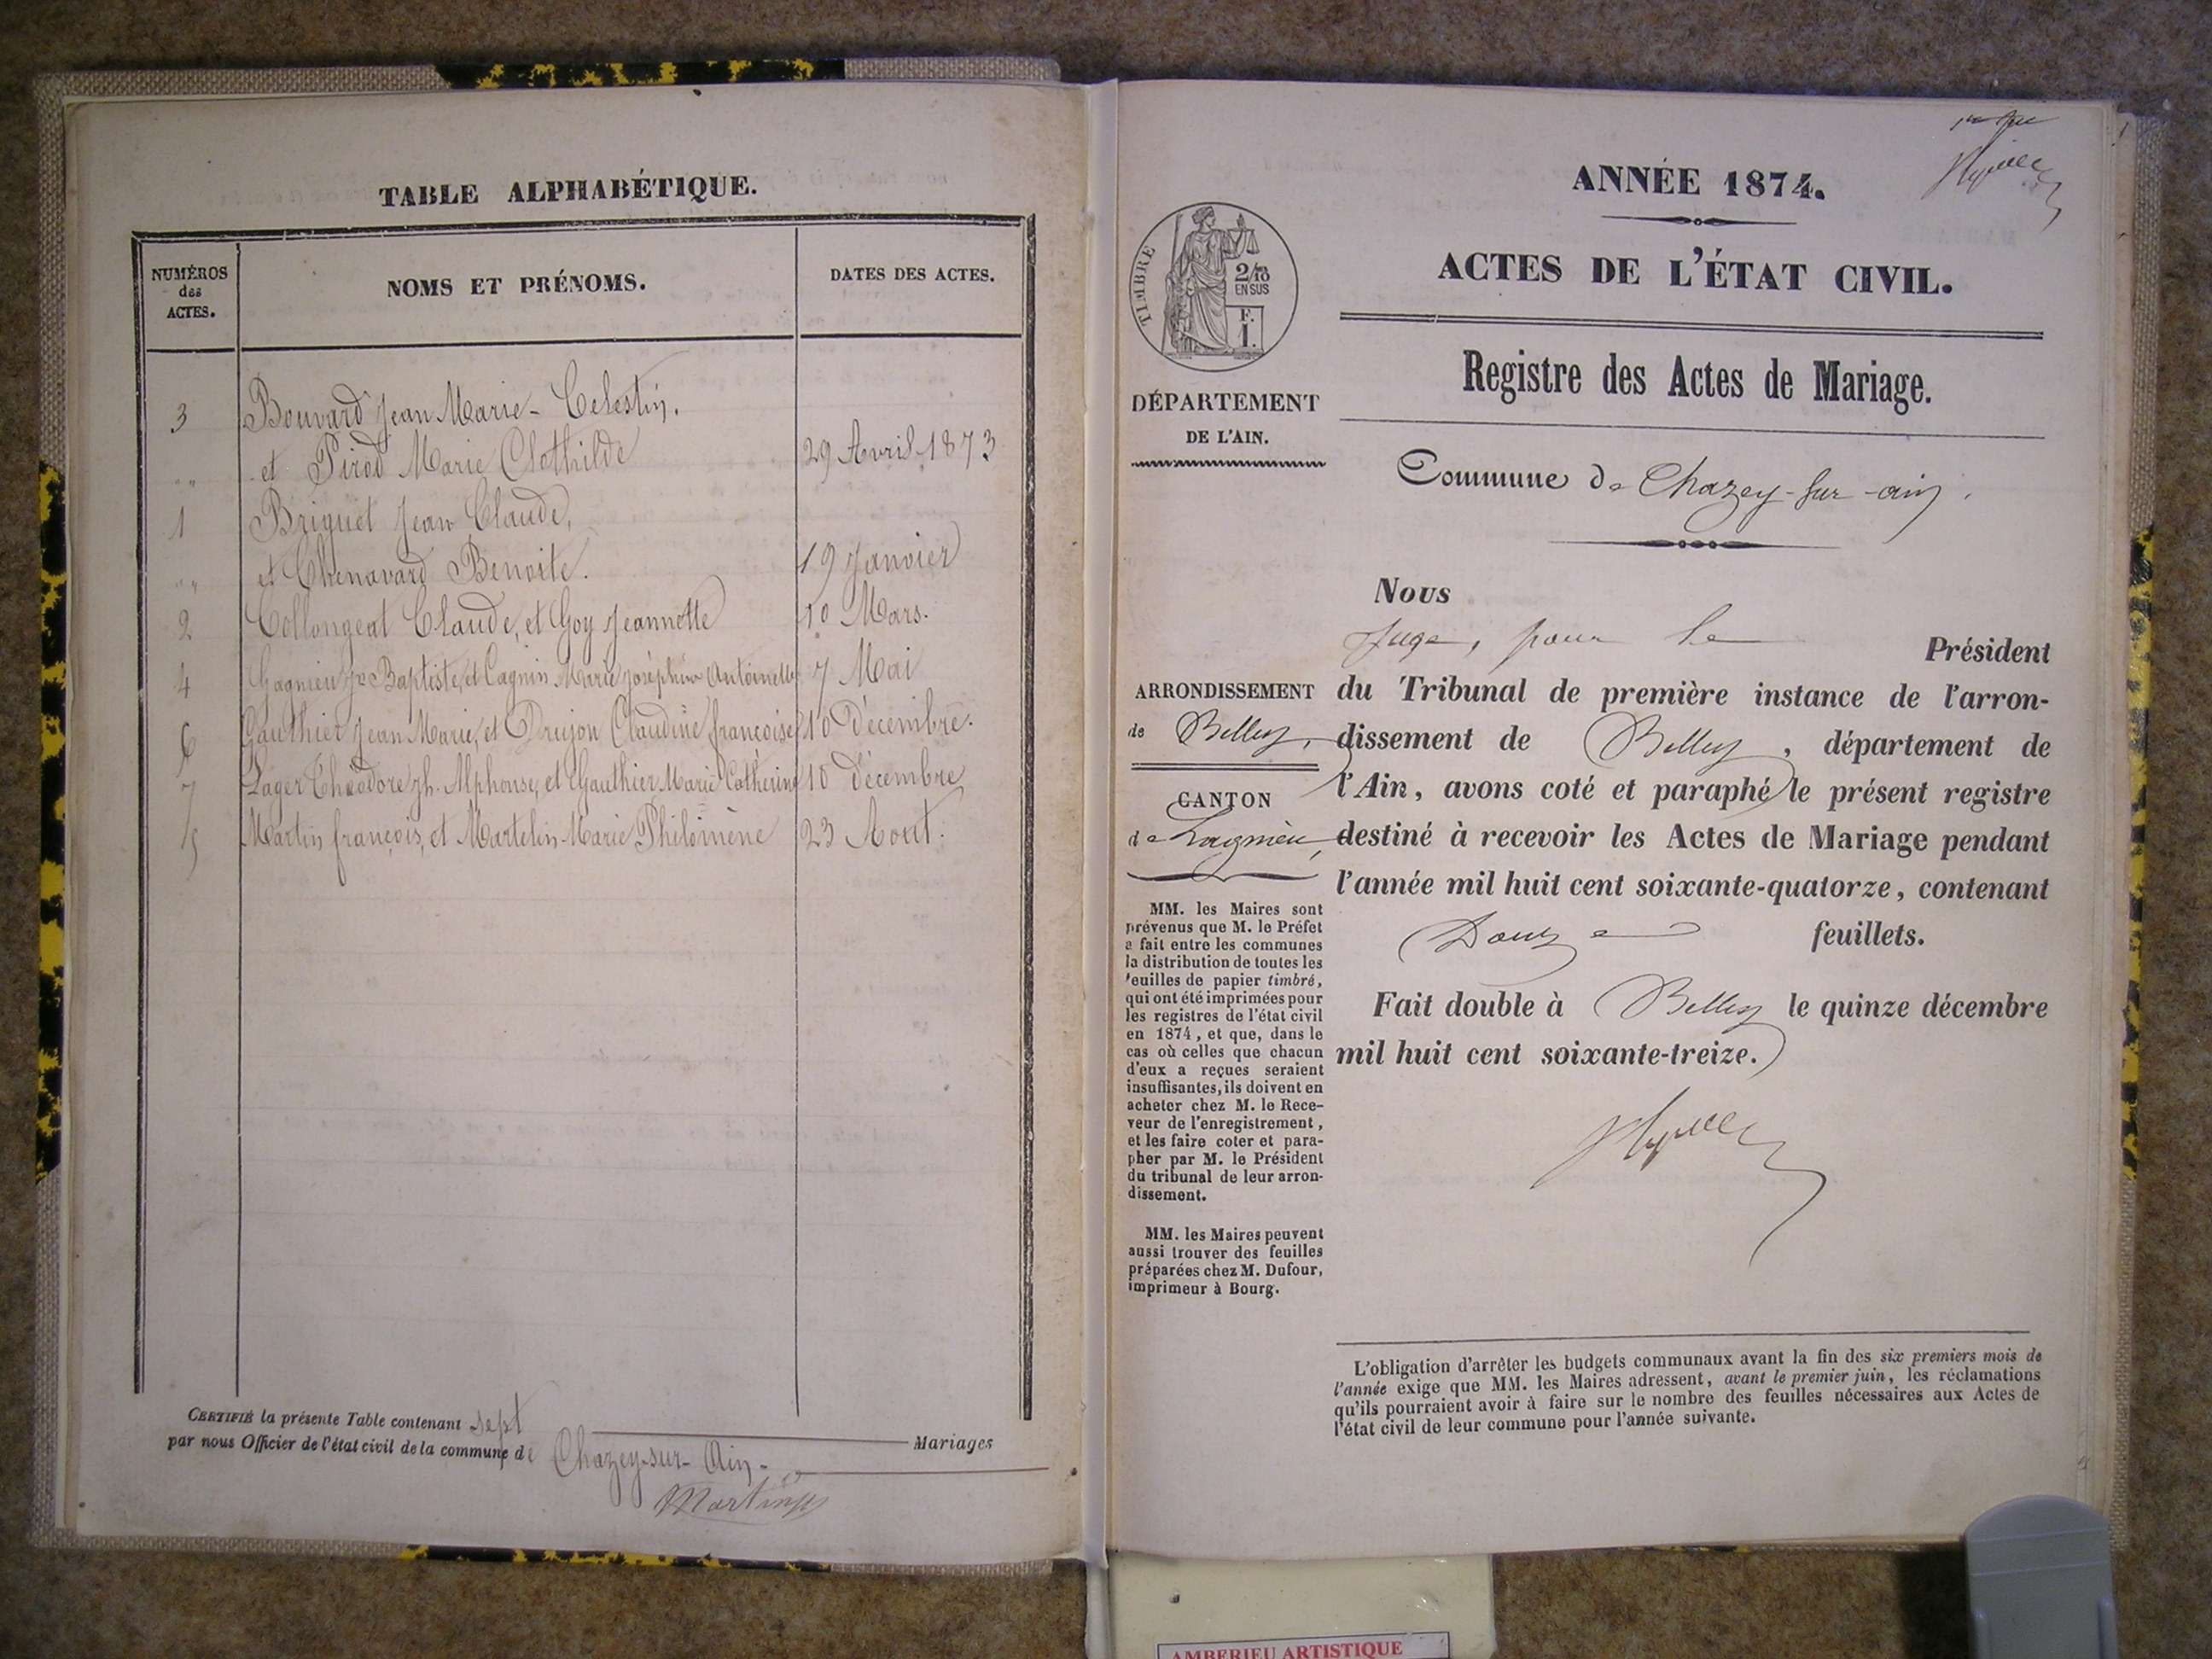 TABLE ALPHABÉTIQUE.
NUMÉROS
des
ACTES.
NOMS ET PRÉNOMS.
DATES DES ACTES.
3 Bouvard Jean Marie-Celestin.
" " et Pirod Marie Clothilde 29 Avril 1873
1 Briguet Jean Claude,
" " et Chenavard Benoite. 19 Janvier
2 Collongeat Claude, et Goy Jeannette 10 Mars.
4 Gagnieu Jn Baptiste, et Cagnin Marie Joséphine Antoinette 7 Mai
6 Gauthier Jean Marie, et Drujon Claudine françoise 10 Décembre.
7 Lager Théodore Jh. Alphonse, et Gauthier Marie Catherine 10 décembre
5 Martin françois, et Martelin Marie Philomène 23 Aout.
CERTIFIÉ la présente Table contenant sept Mariages
par nous Officier de l'état civil de la commune de Chazey-sur-Ain.
Martin
ANNÉE 1874.
ACTES DE L'ÉTAT CIVIL.
TIMBRE
2/10
EN SUS
F.
1.
Registre des Actes de Mariage.
DÉPARTEMENT
DE L'AIN.
Commune de Chazey-sur-ain.
Nous
Juge, pour le Président
ARRONDISSEMENT
de Belley,
CANTON
de Lagnieu,
du Tribunal de première instance de l'arron-
dissement de Belley, département de
l'Ain, avons coté et paraphé le présent registre
destiné à recevoir les Actes de Mariage pendant
l'année mil huit cent soixante-quatorze, contenant
Douze feuillets.
Fait double à Belley le quinze décembre
mil huit cent soixante-treize.
MM. les Maires sont
prévenus que M. le Préfet
a fait entre les communes
la distribution de toutes les
feuilles de papier timbré,
qui ont été imprimées pour
les registres de l'état civil
en 1874, et que, dans le
cas où celles que chacun
d'eux a reçues seraient
insuffisantes, ils doivent en
acheter chez M. le Rece-
veur de l'enregistrement,
et les faire coter et para-
pher par M. le Président
du tribunal de leur arron-
dissement.
MM. les Maires peuvent
aussi trouver des feuilles
préparées chez M. Dufour,
imprimeur à Bourg.
L'obligation d'arrêter les budgets communaux avant la fin des six premiers mois de
l'année exige que MM. les Maires adressent, avant le premier juin, les réclamations
qu'ils pourraient avoir à faire sur le nombre des feuilles nécessaires aux Actes de
l'état civil de leur commune pour l'année suivante.
AMBERIEU ARTISTIQUE